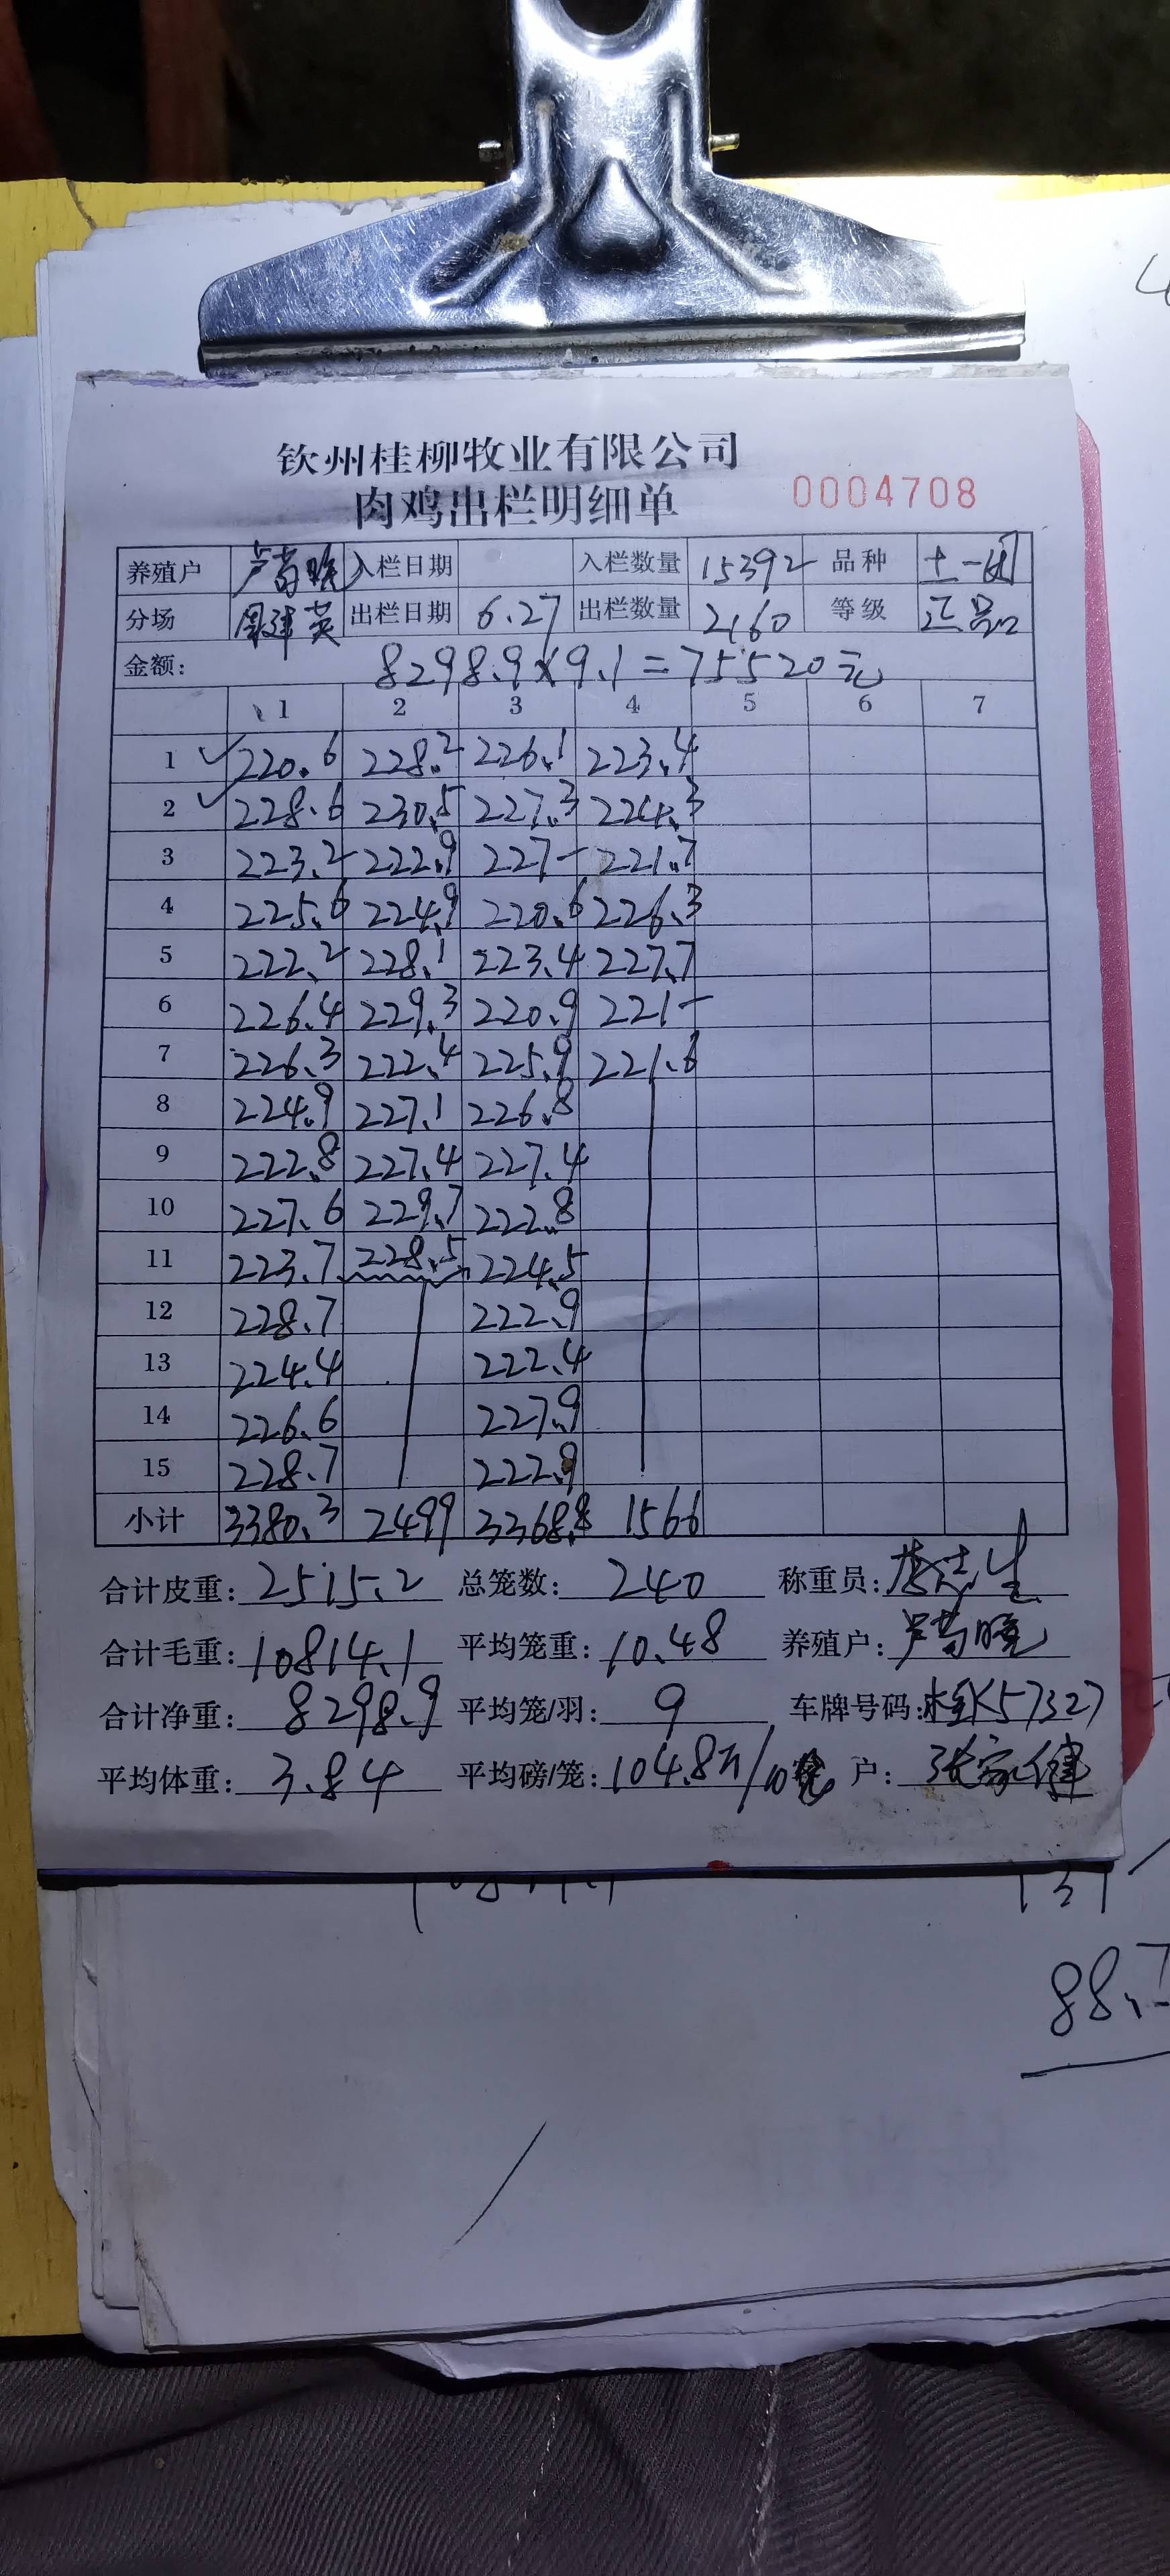 钦州桂柳牧业有限公司
肉鸡出栏明细单 0004708
养殖户 卢菊晓 入栏日期 入栏数量 15392 品种 土一
分场 周建英 出栏日期 6.27 出栏数量 2160 等级 正品
金额: 8298.9×9.1=75520元
1 2 3 4 5 6 7
1 220.6 228.2 226.1 223.4
2 228.6 230.5 227.3 224.3
3 223.2 222.9 227- 221.7
4 225.6 224.9 220.6 226.3
5 222.2 228.1 223.4 227.7
6 226.4 229.3 220.9 221-
7 226.3 222.4 225.9 221.6
8 224.9 227.1 226.8
9 222.8 227.4 227.4
10 227.6 229.7 222.8
11 223.7 228.5 224.5
12 228.7 222.9
13 224.4 222.4
14 226.6 227.9
15 228.7 222.9
小计 3380.3 2499 3368.8 1566
合计皮重: 2515.2 总笼数: 240 称重员:
合计毛重: 10814.1 平均笼重: 10.48 养殖户: 卢菊晓
合计净重: 8298.9 平均笼/羽: 9 车牌号码: 桂K57327
平均体重: 3.84 平均磅/笼: 104.8斤/10笼 户: 张家健
131
88.